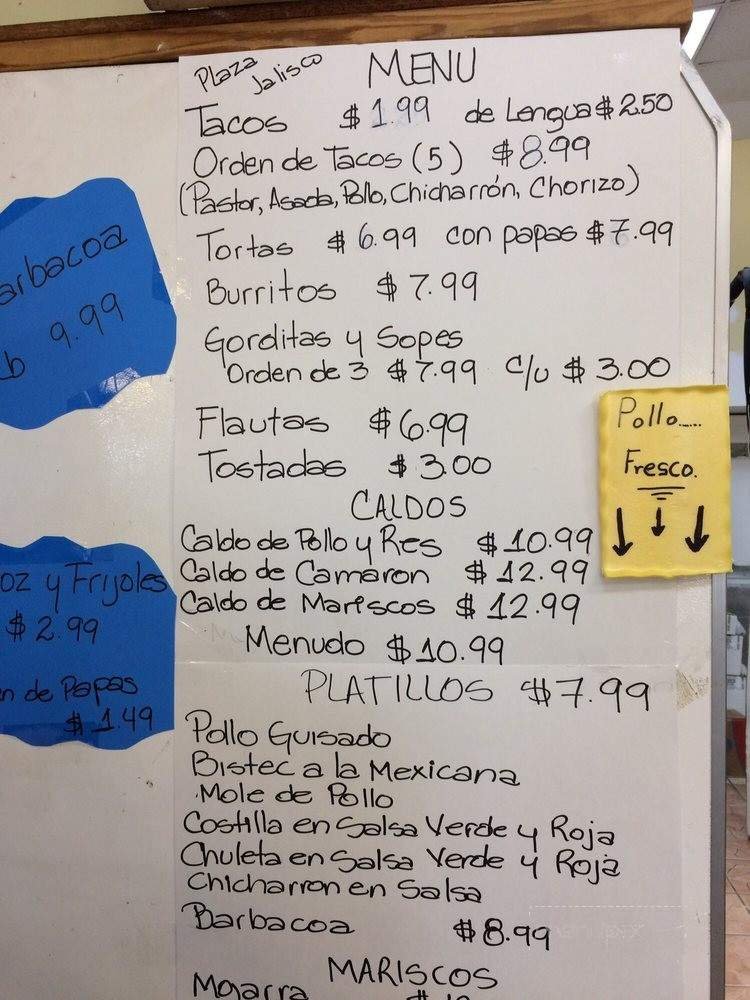 Plaza Jalisco MENU
Tacos $1.99 de Lengua $2.50
Orden de Tacos (5) $8.99
(Pastor, Asada, Pollo, Chicharrón, Chorizo)
Tortas $6.99 con papas $7.99
Burritos $7.99
Gorditas y Sopes
Orden de 3 $7.99 c/u $3.00
Flautas $6.99
Tostadas $3.00
CALDOS
Caldo de Pollo y Res $10.99
Caldo de Camaron $12.99
Caldo de Mariscos $12.99
Menudo $10.99
PLATILLOS $7.99
Pollo Guisado
Bistec a la Mexicana
Mole de Pollo
Costilla en Salsa Verde y Roja
Chuleta en Salsa Verde y Roja
Chicharron en Salsa
Barbacoa $8.99
MARISCOS
Mojarra
arbacoa
Lb 9.99
oz y Frijoles
$2.99
n de Papas
$1.49
Pollo......
Fresco.